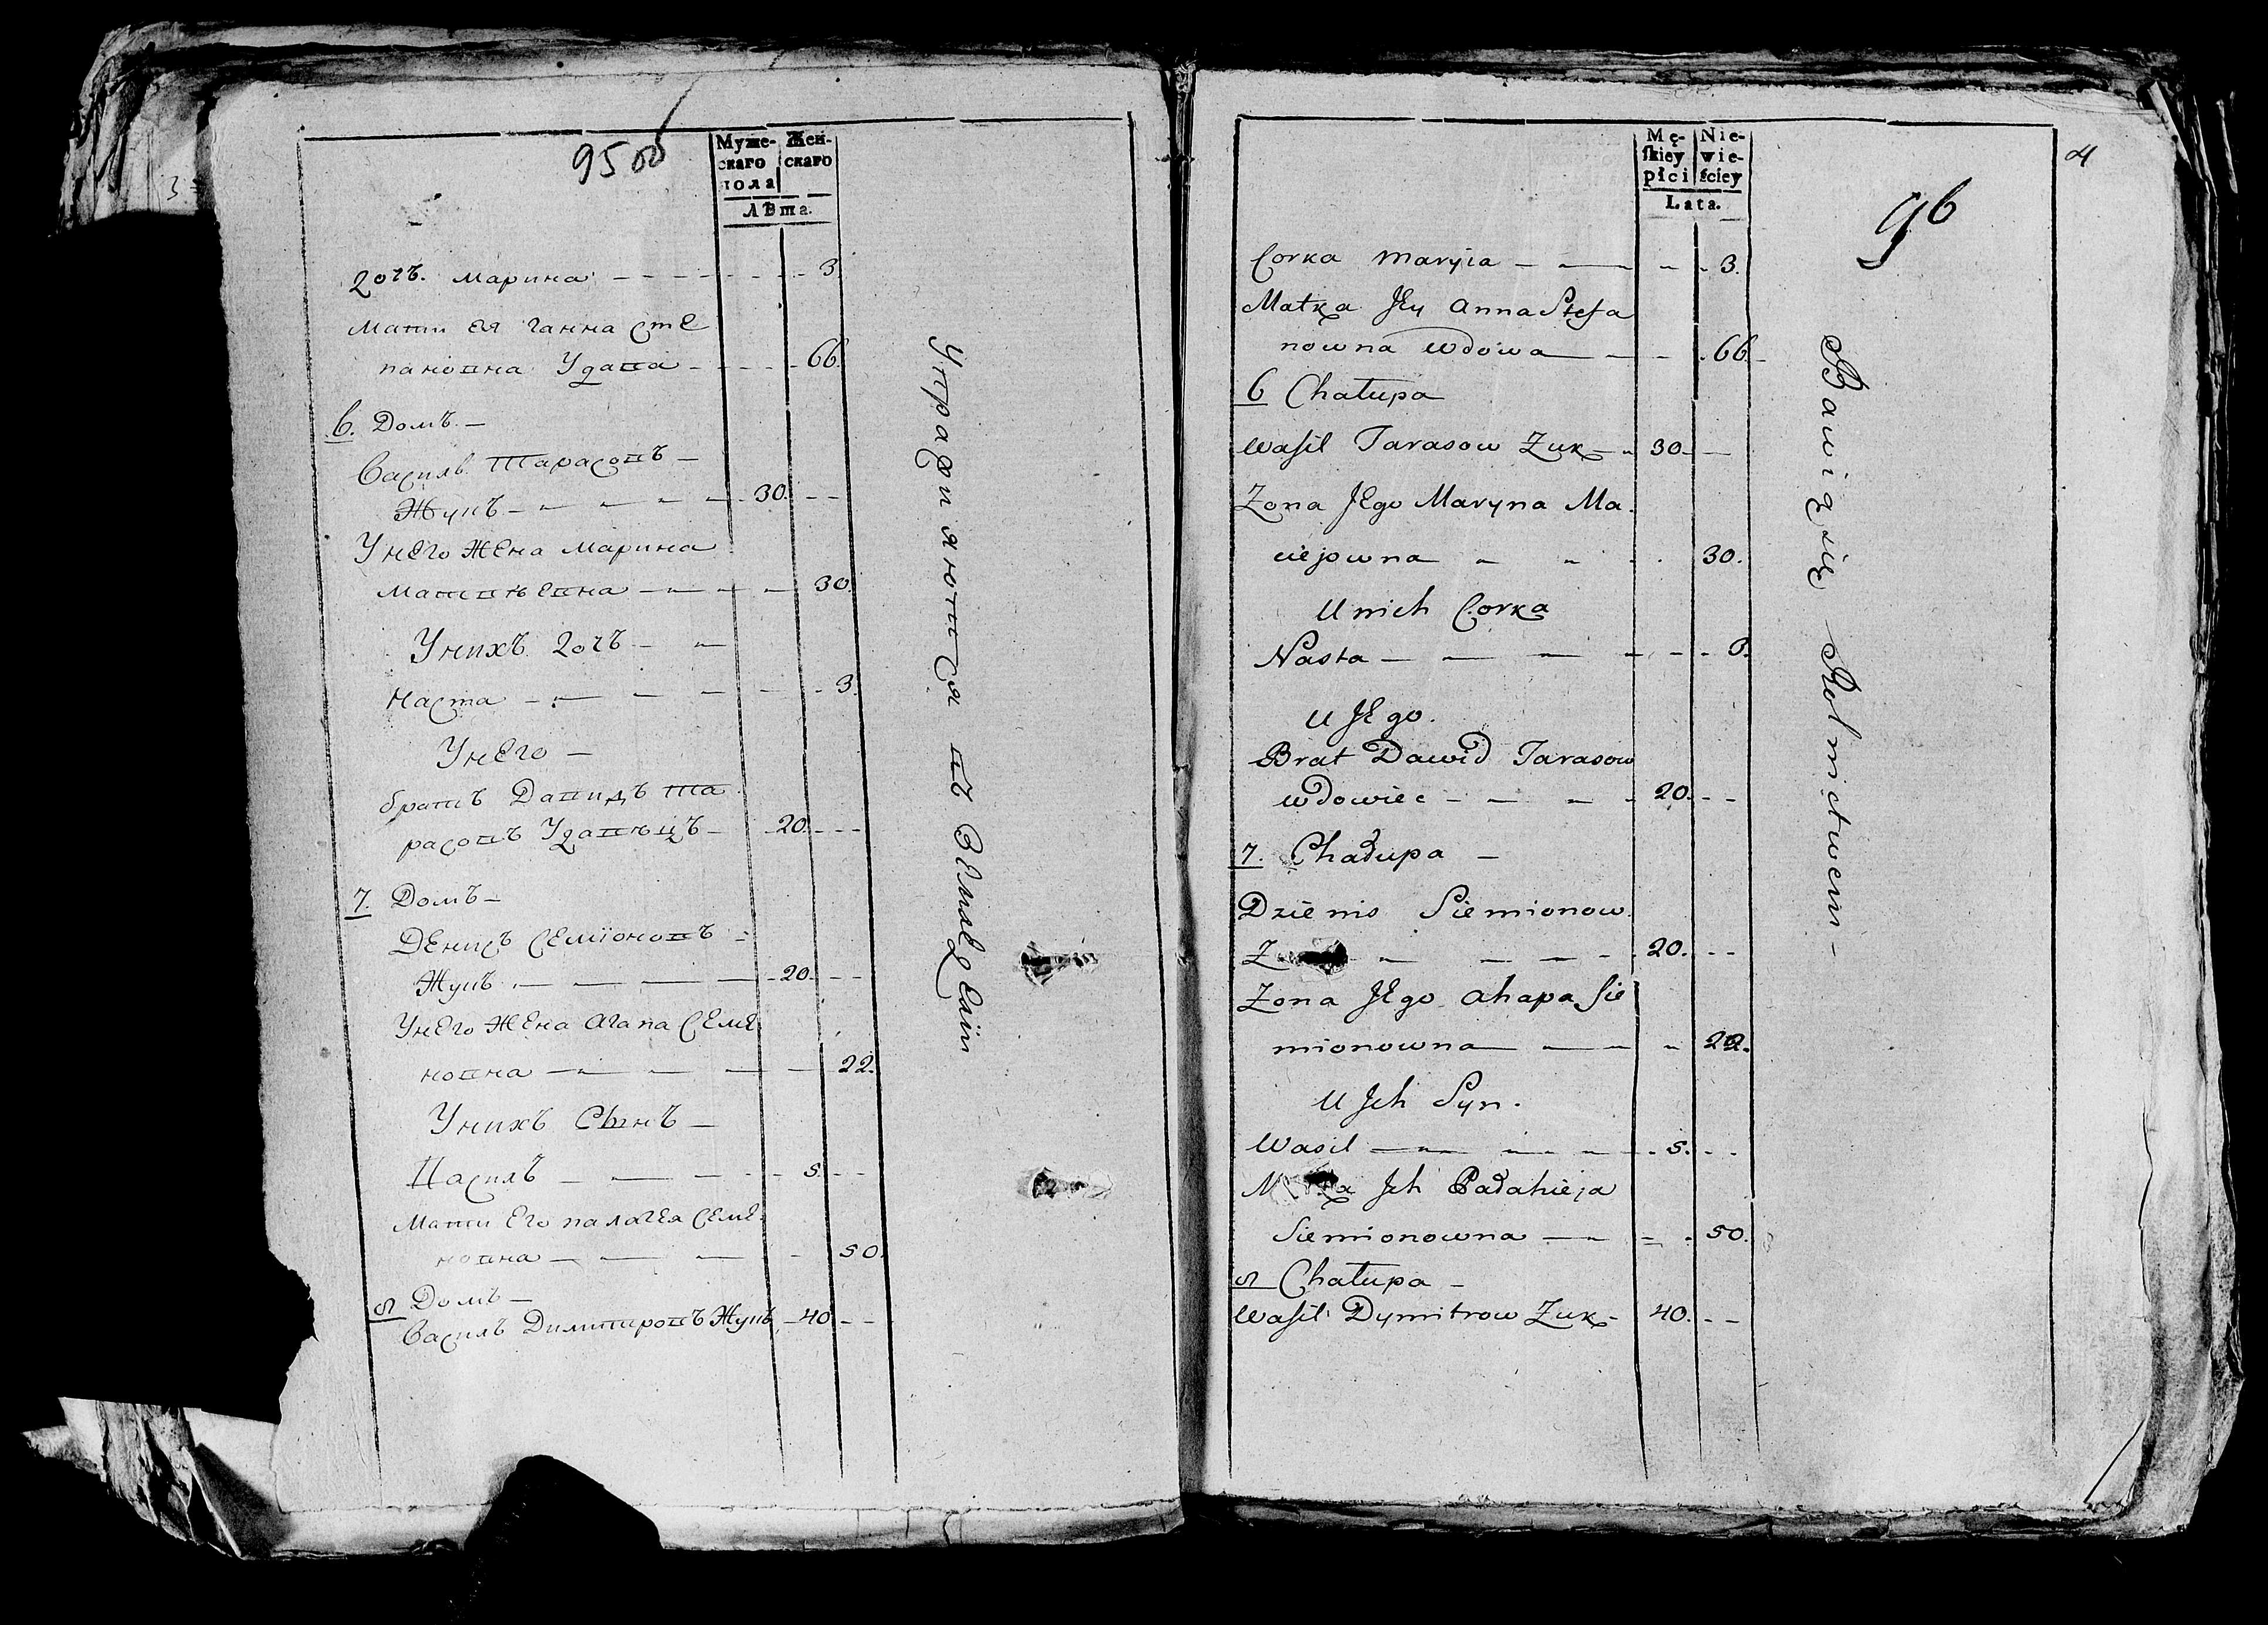 95об
Муже-
скаго
пола
Жен-
скаго
Лѣта.
дочь Марина 3.
Мати ея Ганна Сте
пановна Удава 66.
6. Домъ
Василь Тарасовъ
Жукъ 30.
Унего Жена Марина
Матвѣевна 30.
Унихъ дочь
Наста 3.
Унего
братъ Давидъ Та
расовъ Удавецъ 20.
7. Домъ
Денисъ Семіоновъ
Жукъ 20.
Унего Жена Агапа Семе
новна 22.
Унихъ Сынъ
Василь 5.
Мати Его палагея Семе
новна 50.
8 Домъ
Василь Димитровъ Жукъ 40
Упражняются въ Земледелїи
Mę-
ſkiey
płci
Nie-
wie-
ściey
Lata.
4
96
Corka Maryia 3.
Matka Jey Anna Stefa
nowna wdowa 66.
6 Chałupa
Wasil Tarasow Zuk 30.
Zona Jego Maryna Ma
ciejowna 30.
U nich Corka
Nasta 3.
U Jego.
Brat Dawid Tarasow
wdowiec 20.
7. Chałupa
Dzienis Siemionow
20.
Zona Jego Ahapa Sie
mionowna 22.
U Jch Syn.
Wasil 5.
Jch Pałahieja
Siemionowna 50.
8 Chałupa
Wasil Dymitrow Zuk 40.
Bawią się Rolnictwem